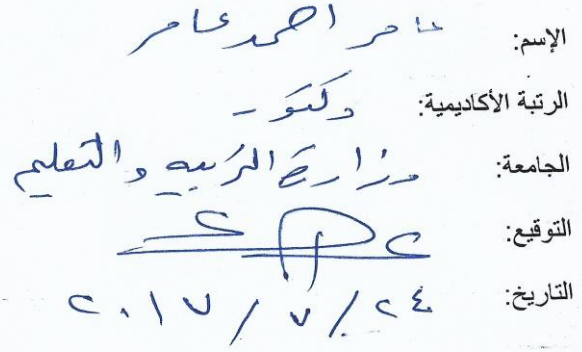 الإسم: عامر احمد عامر
الرتبة الأكاديمية: دكتور
الجامعة: وزارة التربيه والتعليم
التوقيع:
التاريخ: ٢٤ / ٧ / ٢٠١٧